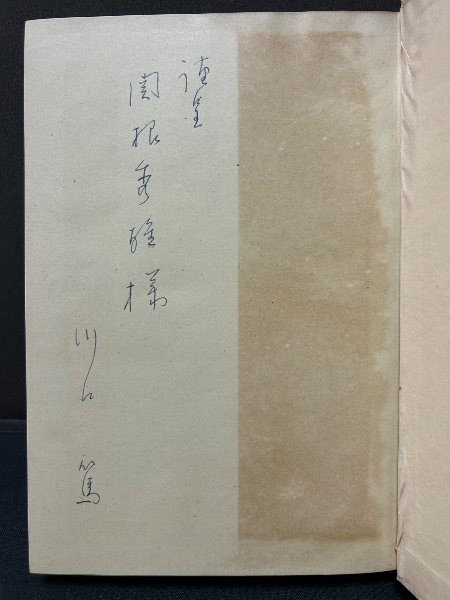 謹呈
関根秀雄様
川口篤